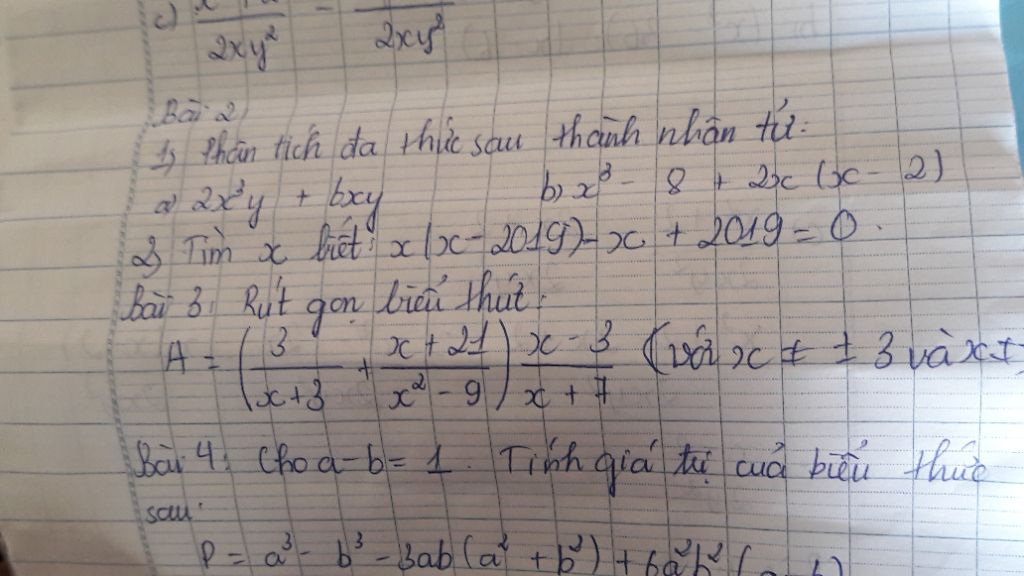 c) - 
2xy² 2xy²
Bài 2
1) Phân tích đa thức sau thành nhân tử:
a) 2x³y + 6xy b) x³ - 8 + 2x (x - 2)
2) Tìm x biết: x(x - 2019) - x + 2019 = 0.
Bài 3: Rút gọn biểu thức:
A = (3/(x+3) + (x+21)/(x²-9)) (x-3)/(x+7) (với x ≠ ± 3 và x ≠
Bài 4: Cho a - b = 1. Tính giá trị cuả biểu thức
sau:
P = a³ - b³ - 3ab(a² + b²) + 6a²b² (